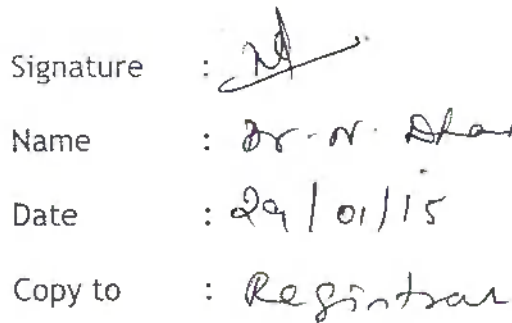 Signature :
Name : Dr. N.
Date : 29/01/15
Copy to : Registrar